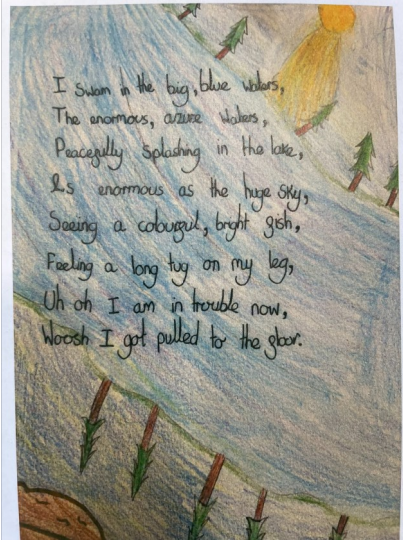 I swam in the big, blue waters,
The enormous, azure waters,
Peacefully splashing in the lake,
As enormous as the huge sky,
Seeing a colourful, bright fish,
Feeling a long tug on my leg,
Uh oh I am in trouble now,
Woosh I got pulled to the floor.